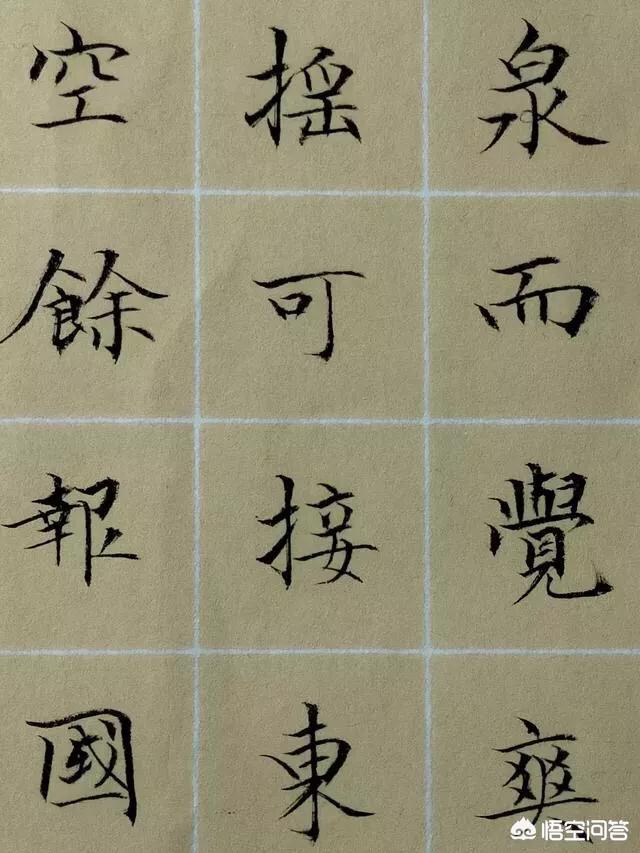 泉而覺爽
摇可接東
空餘報國
悟空问答